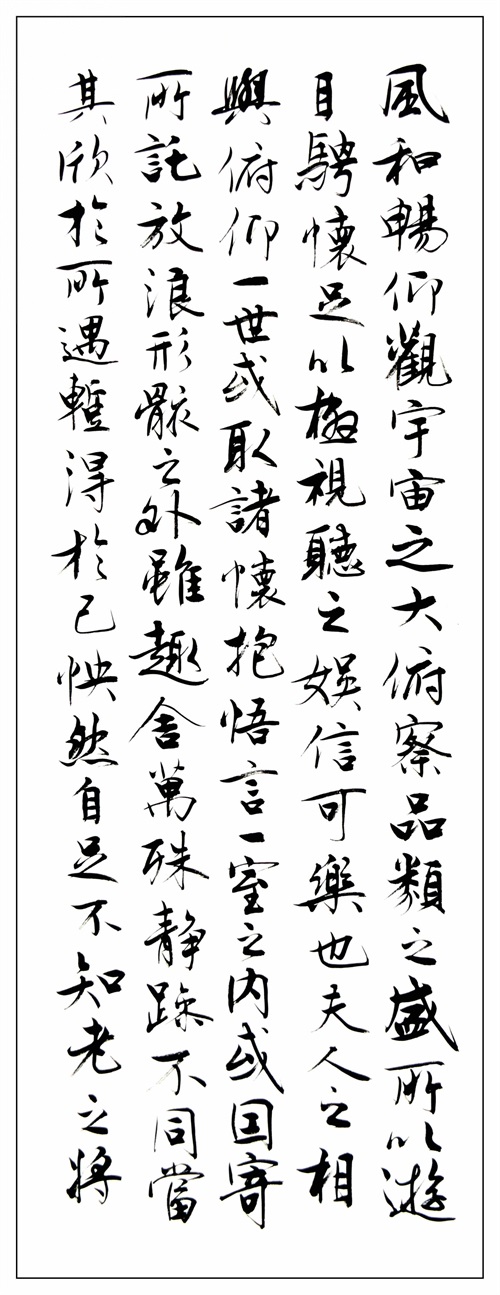 風和暢仰觀宇宙之大俯察品類之盛所以遊
目騁懷足以極視聽之娛信可樂也夫人之相
與俯仰一世或取諸懷抱悟言一室之內或因寄
所託放浪形骸之外雖趣舍萬殊靜躁不同當
其欣於所遇蹔得於己怏然自足不知老之將